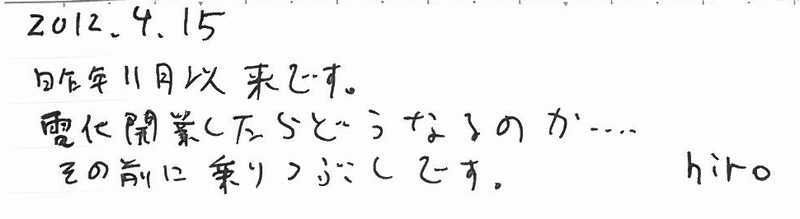 2012.4.15
昨年11月以来です。
電化開業したらどうなるのか....
その前に乗りつぶしです。 hiro